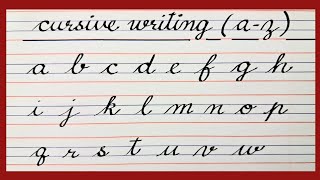 cursive writing (a-z)
a b c d e f g h
i j k l m n o p
q r s t u v w